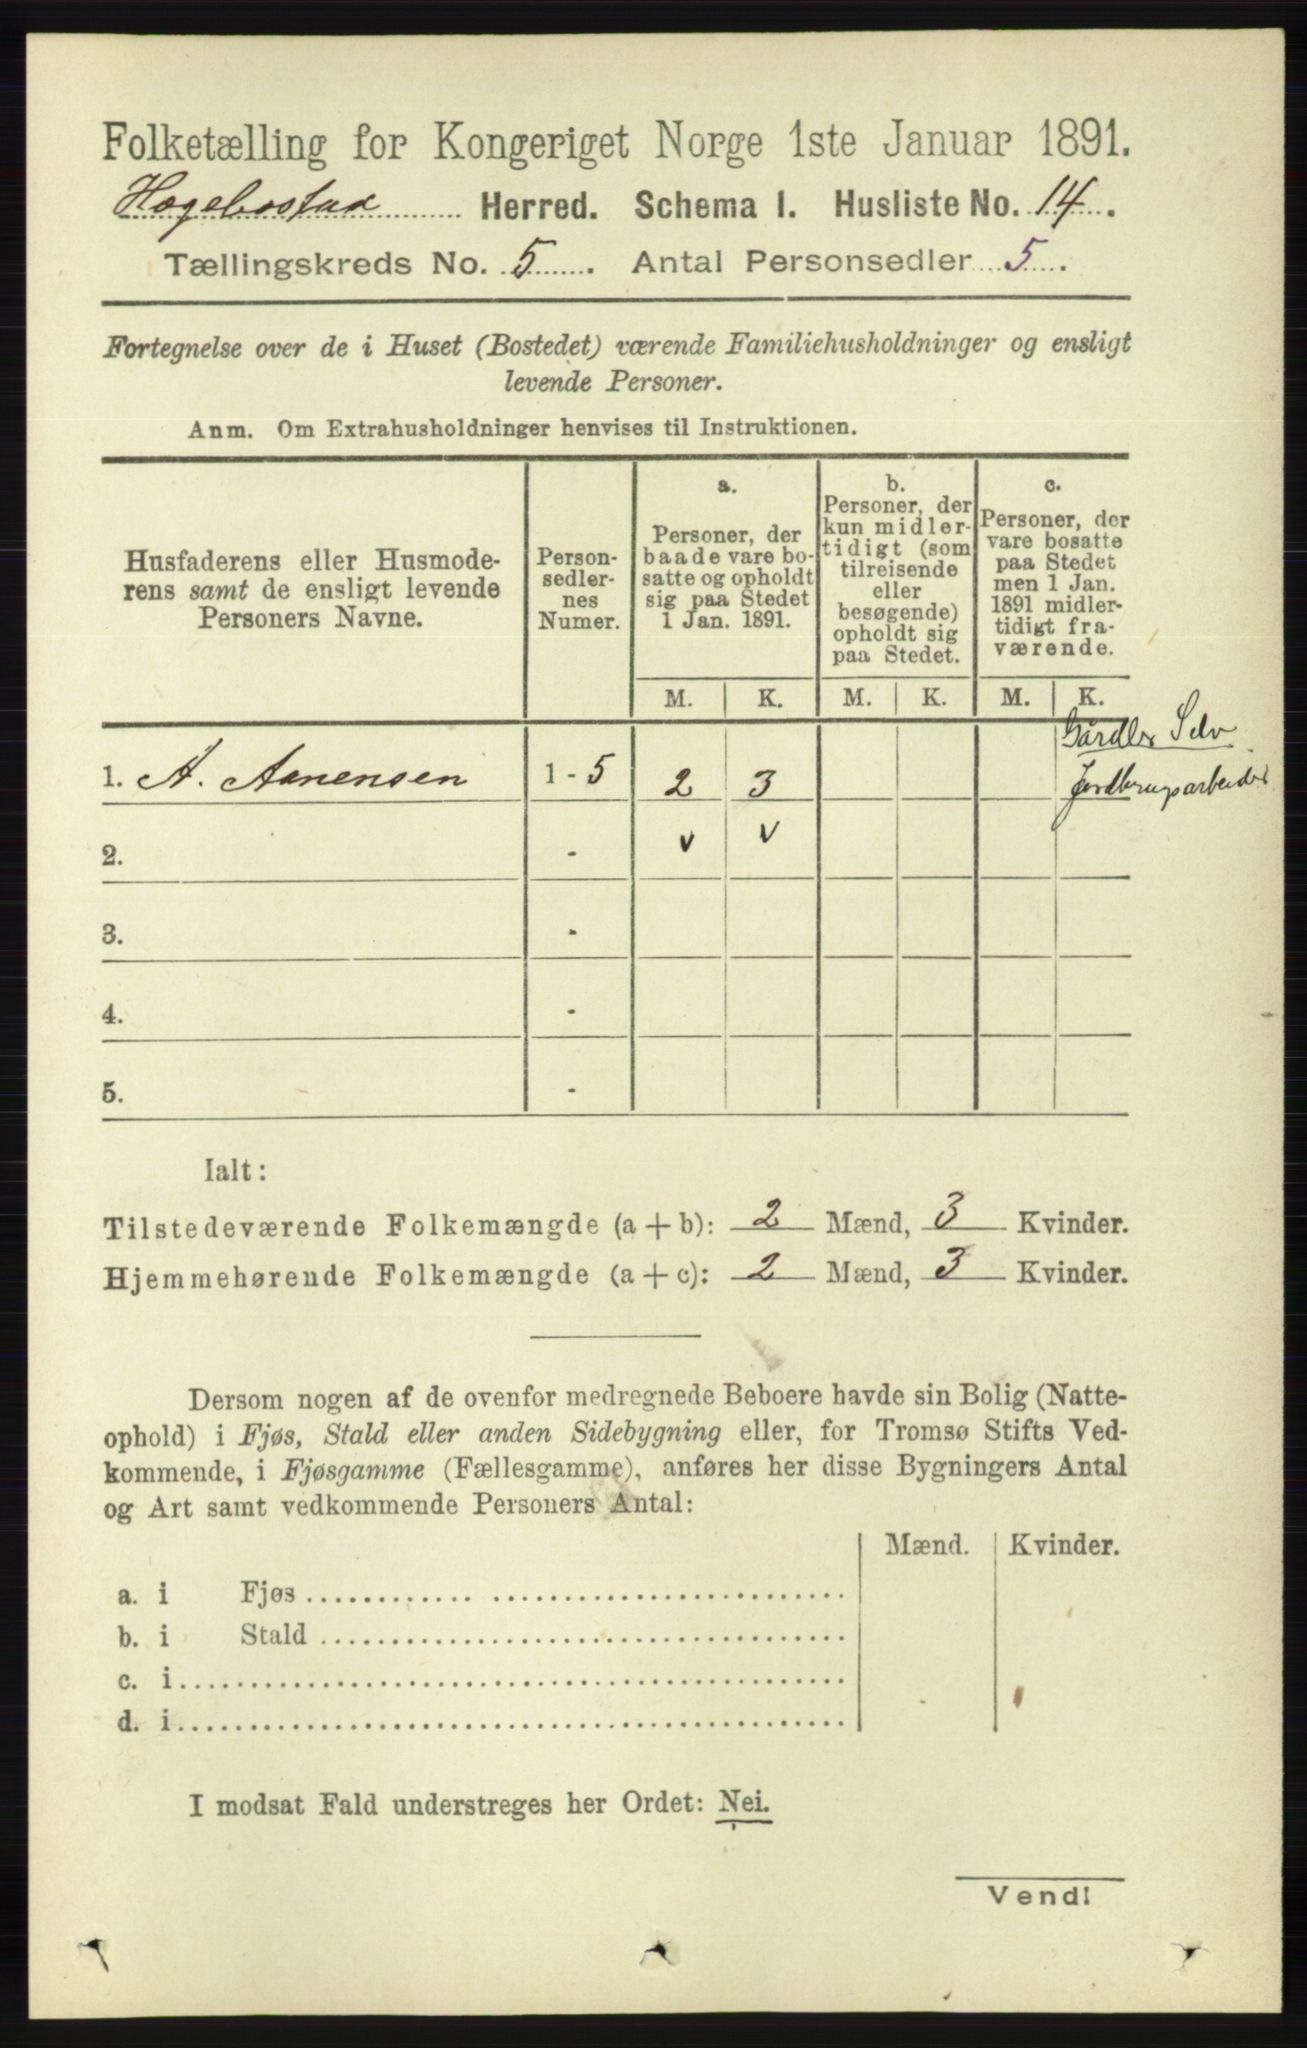 Folketælling for Kongeriget Norge 1ste Januar 1891.
Hægebostad Herred. Schema I. Husliste No. 14.
Tællingskreds No. 5. Antal Personsedler 5.
Fortegnelse over de i Huset (Bostedet) værende Familiehusholdninger og ensligt
levende Personer.
Anm. Om Extrahusholdninger henvises til Instruktionen.
Husfaderens eller Husmode-
rens samt de ensligt levende
Personers Navne.
Person-
sedler-
nes
Numer.
a.
Personer, der
baade vare bo-
satte og opholdt
sig paa Stedet
1 Jan. 1891.
b.
Personer, der
kun midler-
tidigt (som
tilreisende
eller
besøgende)
opholdt sig
paa Stedet.
c.
Personer, der
vare bosatte
paa Stedet
men 1 Jan.
1891 midler-
tidigt fra-
værende.
M. K. M. K. M. K.
Gårdbr Selv
1. A. Aanensen 1 - 5 2 3
Jordbrugsarbeider
2. - v v
3. -
4. -
5. -
Ialt:
Tilstedeværende Folkemængde (a + b): 2 Mænd, 3 Kvinder.
Hjemmehørende Folkemængde (a + c): 2 Mænd, 3 Kvinder.
Dersom nogen af de ovenfor medregnede Beboere havde sin Bolig (Natte-
ophold) i Fjøs, Stald eller anden Sidebygning eller, for Tromsø Stifts Ved-
kommende, i Fjøsgamme (Fællesgamme), anføres her disse Bygningers Antal
og Art samt vedkommende Personers Antal:
Mænd. Kvinder.
a. i Fjøs
b. i Stald
c. i
d. i
I modsat Fald understreges her Ordet: Nei.
Vend!